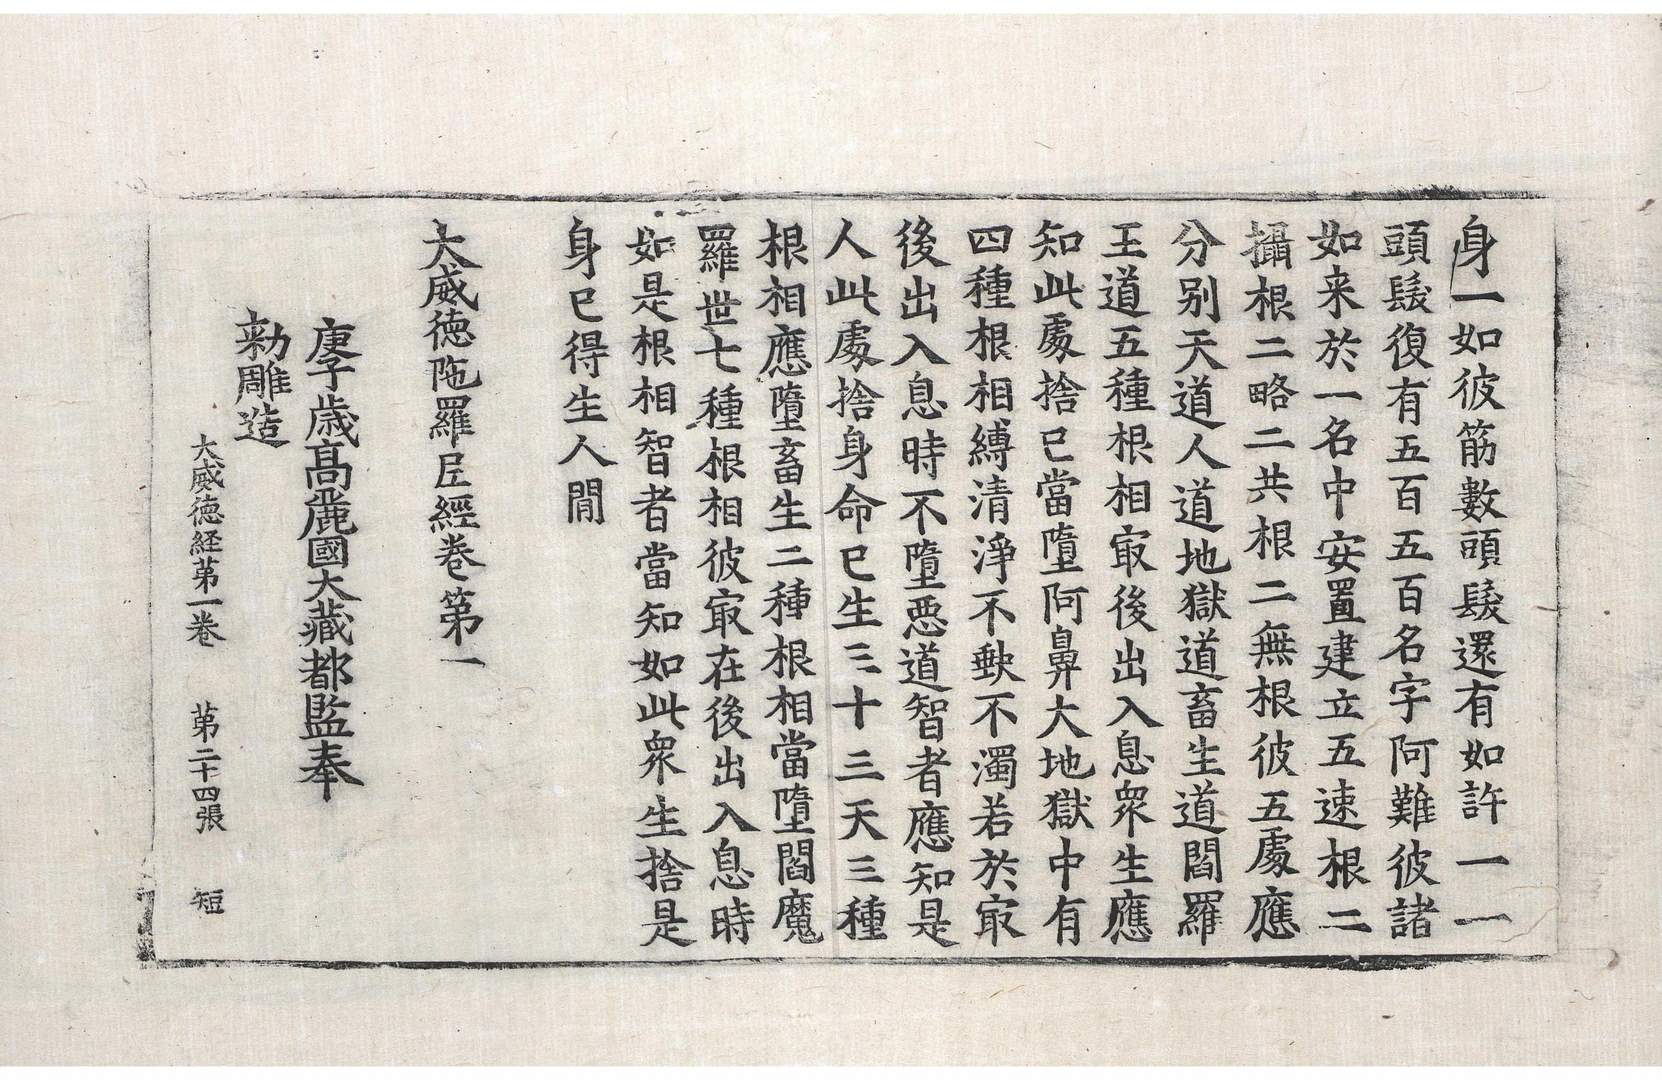 身一如彼筋數頭髮還有如許一一
頭髮復有五百五百名字阿難彼諸
如来於一名中安置建立五速根二
攝根二略二共根二無根彼五處應
分别天道人道地獄道畜生道閻羅
王道五種根相㝡後出入息衆生應
知此處捨已當墮阿鼻大地獄中有
四種根相縛清淨不軟不濁若於㝡
後出入息時不墮惡道智者應知是
人此處捨身命已生三十三天三種
根相應墮畜生二種根相當墮閻魔
羅世七種根相彼㝡在後出入息時
如是根相智者當知如此衆生捨是
身已得生人間
大威徳陁羅尼經卷第一
庚子歳高麗國大藏都監奉
勑雕造
大威徳経第一卷 第二十四張 短